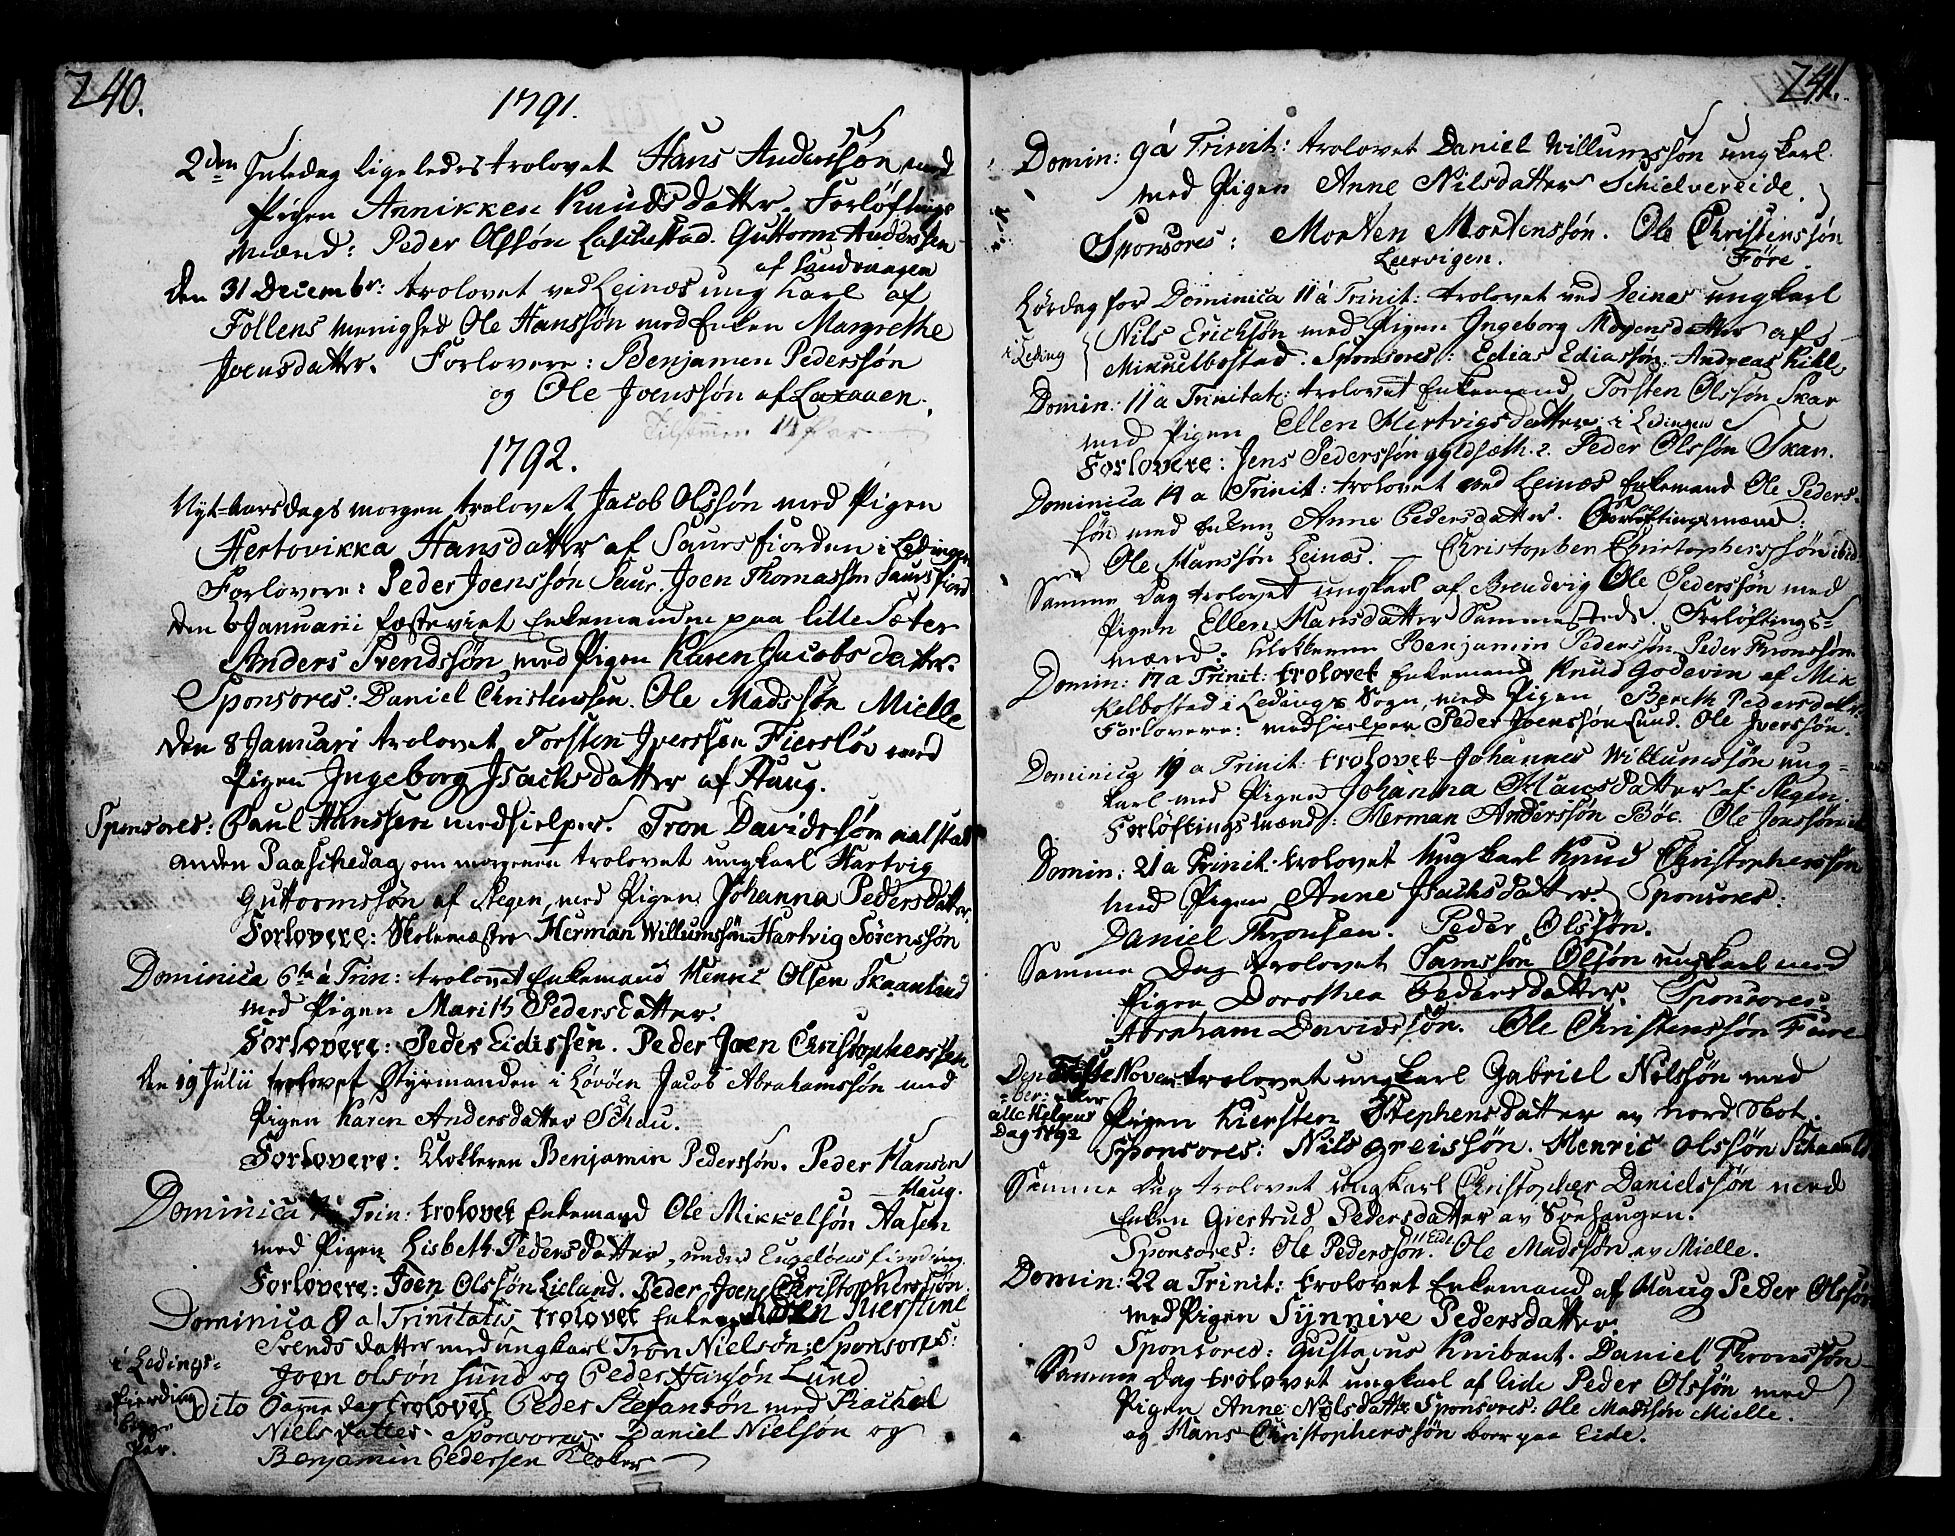 240.
1791.
2den Juledag ligeledes trolovet Hans Anderssøn med
Pigen Annikken Knudsdatter. Forløftnings
mænd: Peder Olssøn Laskestad. Guttorm Anderssen
af Sandvaagen
den 31 Decembr: trolovet ved Leinæs ung karl af
Follens menighed Ole Hanssøn med Enken Margrethe
Joensdatter. Forlovere: Benjamen Pederssøn
og Ole Joenssøn af Laxaaen.
Tilsammen 14 Par
1792.
Nyt-aarsdags morgen trolovet Jacob Olssøn med Pigen
Hertovikka Hansdatter af Saursfiorden i Ledingen
Forlovere: Peder Joenssøn Saur. Joen Thomassøn Saursfiord
den 6 Januarii fæsteviet Enkemanden paa lille Sæter
Anders Svendssøn, med Pigen Karen Jacobsdatter.
Sponsores: Daniel Christenssen. Ole Madssøn Mielle
den 8 Januari trolovet Torsten Iverssen Fiersløv med
Pigen Ingeborg Isachsdatter af Haug.
Sponsores: Paul Hanssen medhielper. Tron Davidssøn aalstad
anden Paaschedag om morgenen trolovet ungkarl Hartvig
Guttormssøn af Stegen, med Pigen Johanna Pedersdatter.
Forlovere: Skolemæster Herman Willumssøn Hartvig Sørenssøn
Dominica 6ta á Trin: trolovet Enkemand Henric Olsen Skaanland
med Pigen Marith Pedersdatter.
Forlovere: Peder Eidissen. Peder Joen Christopherssen
den 19 Julii trolovet Styrmanden i Løvøen Jacob Abrahamssøn med
Pigen Karen Andersdatter Schau.
Forlovere: Klokkeren Benjamin Pederssøn. Peder Hansen
Haug.
Dominica Trin: trolovet Enkemand Ole Mikkelsøn Aasen
med Pigen Lisbeth Pedersdatter, under Engeløens fierding.
Forlovere: Joen Olssøn Lieland. Peder Joen Christopherssøn.
Dominica 8 á Trinitatis trolovet Enken Kierstine
Svends datter med ungkarl Tron Nielsøn: Sponsores:
Joen olsøn Sund og Peder Hansøn Lund
i Ledings-
fierding
begge
Par.
Dito Samme dag trolovet Peder Stefansøn med Rachel
Niels datter. Sponsores. Daniel Nielsøn og
Benjamin Pedersen Kloker
241.
Domin: 9á Trinit: trolovet Daniel Willumssøn ungkarl.
med Pigen Anne Nilsdatter Schielvereide.
Sponsores: Morten Mortenssøn. Ole Christenssøn
Leervigen. Føre.
Lørdag for Dominica 11 á Trinit: trolovet ved Leines ungkarl
i Leding
Nils Erichsøn med Pigen Ingeborg Mogensdatter af
Mikkelbostad. Sponsores: Edias Ediassøn. Andreas Kihl
Domin: 11 a Trinitat: trolovet Enkemand Torsten Olssøn Skar
med Pigen Ellen Hertvigsdatter i Ledingen
Forlovere: Jens Pederssøn gyldsæth. 2. Peder Olssøn Skar.
Dominica 14 a Trinit: trolovet ved Leinæs Enkemand Ole Peders-
søn med Enken Anne Pedersdatter. Forløftingsmænd:
Ole Hanssøn Leinæs. Christophen Christopherssøn ibid
Samme Dag trolovet ungkarl af Brendvig Ole Pederssøn med
Pigen Ellen Hansdatter Sammesteds. Forløftings-
mænd: Klokkeren Benjamin Pederssøn, Peder Thronssøn.
Domin: 17 a Trinit: trolovet Enkemand Knud Godevin af Mik
kelbostad i Ledings Sogn, med Pigen Bereth Pedersdatter.
Forlovere: medhielper Peder Joenssøn Lund. Ole Iverssøn.
Dominica 19 a Trinit: trolovet Johannes Willumssøn ung-
karl med Pigen Johanna Hansdatter af Stegen
Forløftingsmænd: Herman Anderssøn Bøe. Ole Jenssøn
Domin: 21 a Trinit. trolovet ungkarl Knud Christopherssøn
med Pigen Anne Isachsdatter. Sponsores:
Daniel Thronsen. Peder Olssøn.
Samme Dag trolovet Samssøn Olsøn ungkarl med
Pigen Dorothea Pedersdatter. Sponsores:
Abraham Davidssøn. Ole Christenssøn Fure
Den første Novem trolovet ungkarl Gabriel Nilssøn med
-ber: eller
alle Helgens
Dag 1792
Pigen Kiersten Stephensdatter av Nord Skot.
Sponsores: Nils Greissøn. Henric Olssøn Schaanl
Samme Dag trolovet ungkarl Christopher Danielssøn med
Enken Giertrud Pedersdatter av Soehaugen.
Sponsores: Ole Pederssøn Eide. Ole Madssøn av Mielle.
Domin: 22 a Trinit: trolovet Enkemand af Haug Peder Olssøn
med Pigen Synnive Pedersdatter.
Sponsores: Gustavus Knibant. Daniel Thronssøn
Samme Dag trolovet ungkarl af Eide Peder Olssøn med
Pigen Anne Nilsdatter Sponsores: Ole Madssøn Mielle.
og Hans Christopherssøn boer paa Eide.